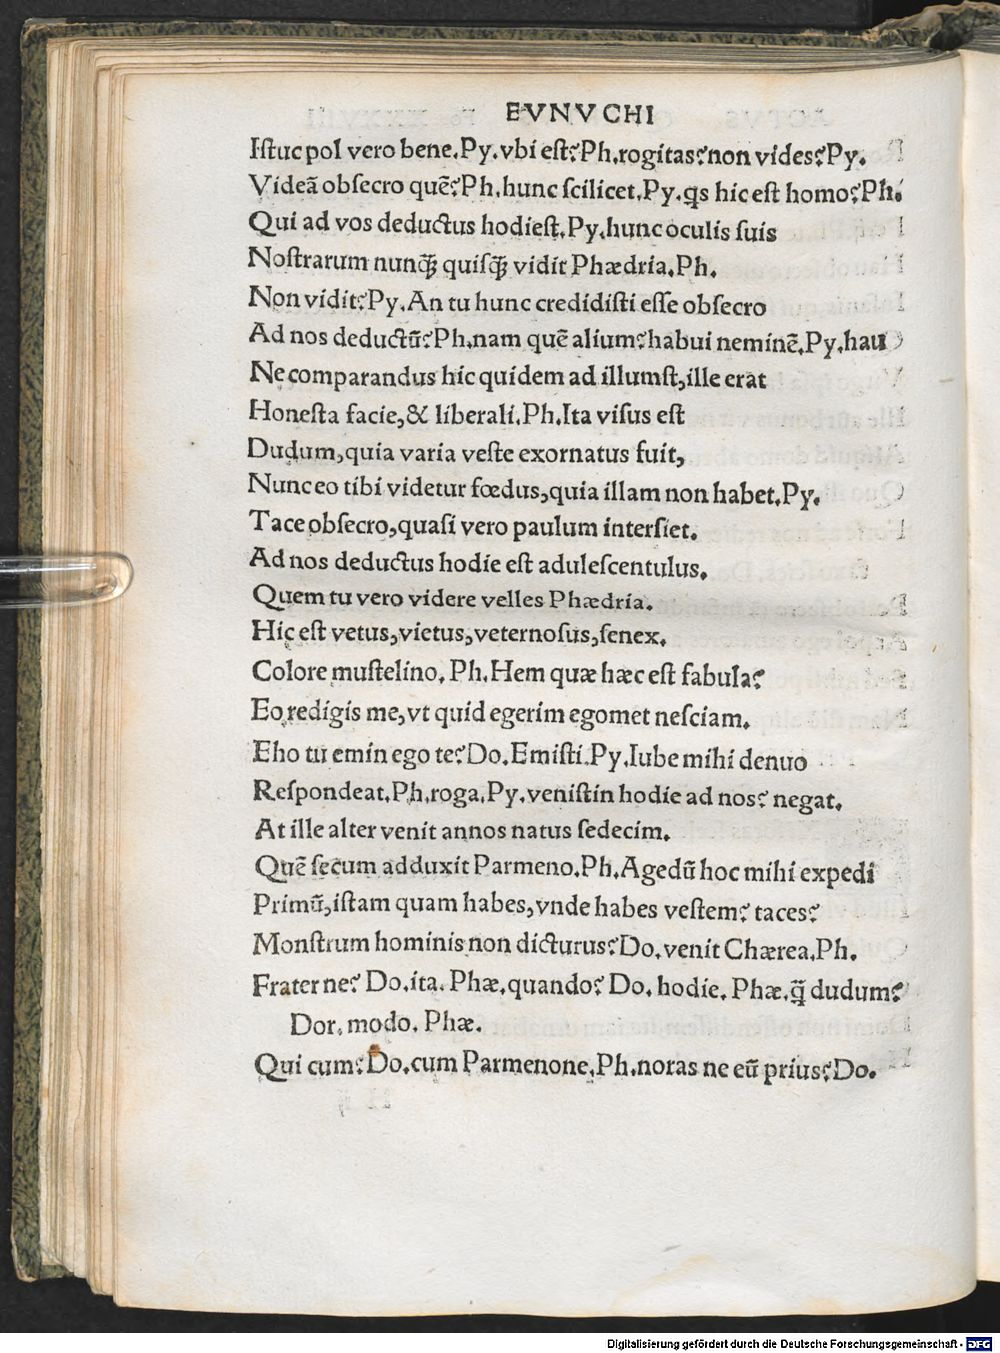 EVNVCHI
Istuc pol vero bene.Py.vbi est?Ph.rogitas?non vides?Py.
Videã obsecro quẽ?Ph.hunc scilicet.Py.qs hic est homo?Ph.
Qui ad vos deductus hodiest.Py.hunc oculis suis
Nostrarum nunq̃ quisq̃ vidit Phædria.Ph.
Non vidit?Py.An tu hunc credidisti esse obsecro
Ad nos deductũ?Ph.nam quẽ alium?habui neminẽ.Py.hau
Ne comparandus hic quidem ad illumst,ille erat
Honesta facie,& liberali.Ph.Ita visus est
Dudum,quia varia veste exornatus fuit,
Nunc eo tibi videtur fœdus,quia illam non habet.Py.
Tace obsecro,quasi vero paulum intersiet.
Ad nos deductus hodie est adulescentulus.
Quem tu vero videre velles Phædria.
Hic est vetus,vietus,veternosus,senex.
Colore mustelino. Ph.Hem quæ hæc est fabula?
Eo redigis me,vt quid egerim egomet nesciam.
Eho tu emin ego te?Do.Emisti.Py.Iube mihi denuo
Respondeat.Ph.roga.Py.venistin hodie ad nos? negat.
At ille alter venit annos natus sedecim.
Quẽ secum adduxit Parmeno.Ph.Agedũ hoc mihi expedi
Primũ,istam quam habes,vnde habes vestem? taces?
Monstrum hominis non dicturus?Do.venit Chærea.Ph.
Frater ne? Do.ita. Phæ.quando? Do. hodie. Phæ.q̃ dudum?
Dor.modo. Phæ.
Qui cum?Do.cum Parmenone.Ph.noras ne eũ prius?Do.
Digitalisierung gefördert durch die Deutsche Forschungsgemeinschaft - DFG